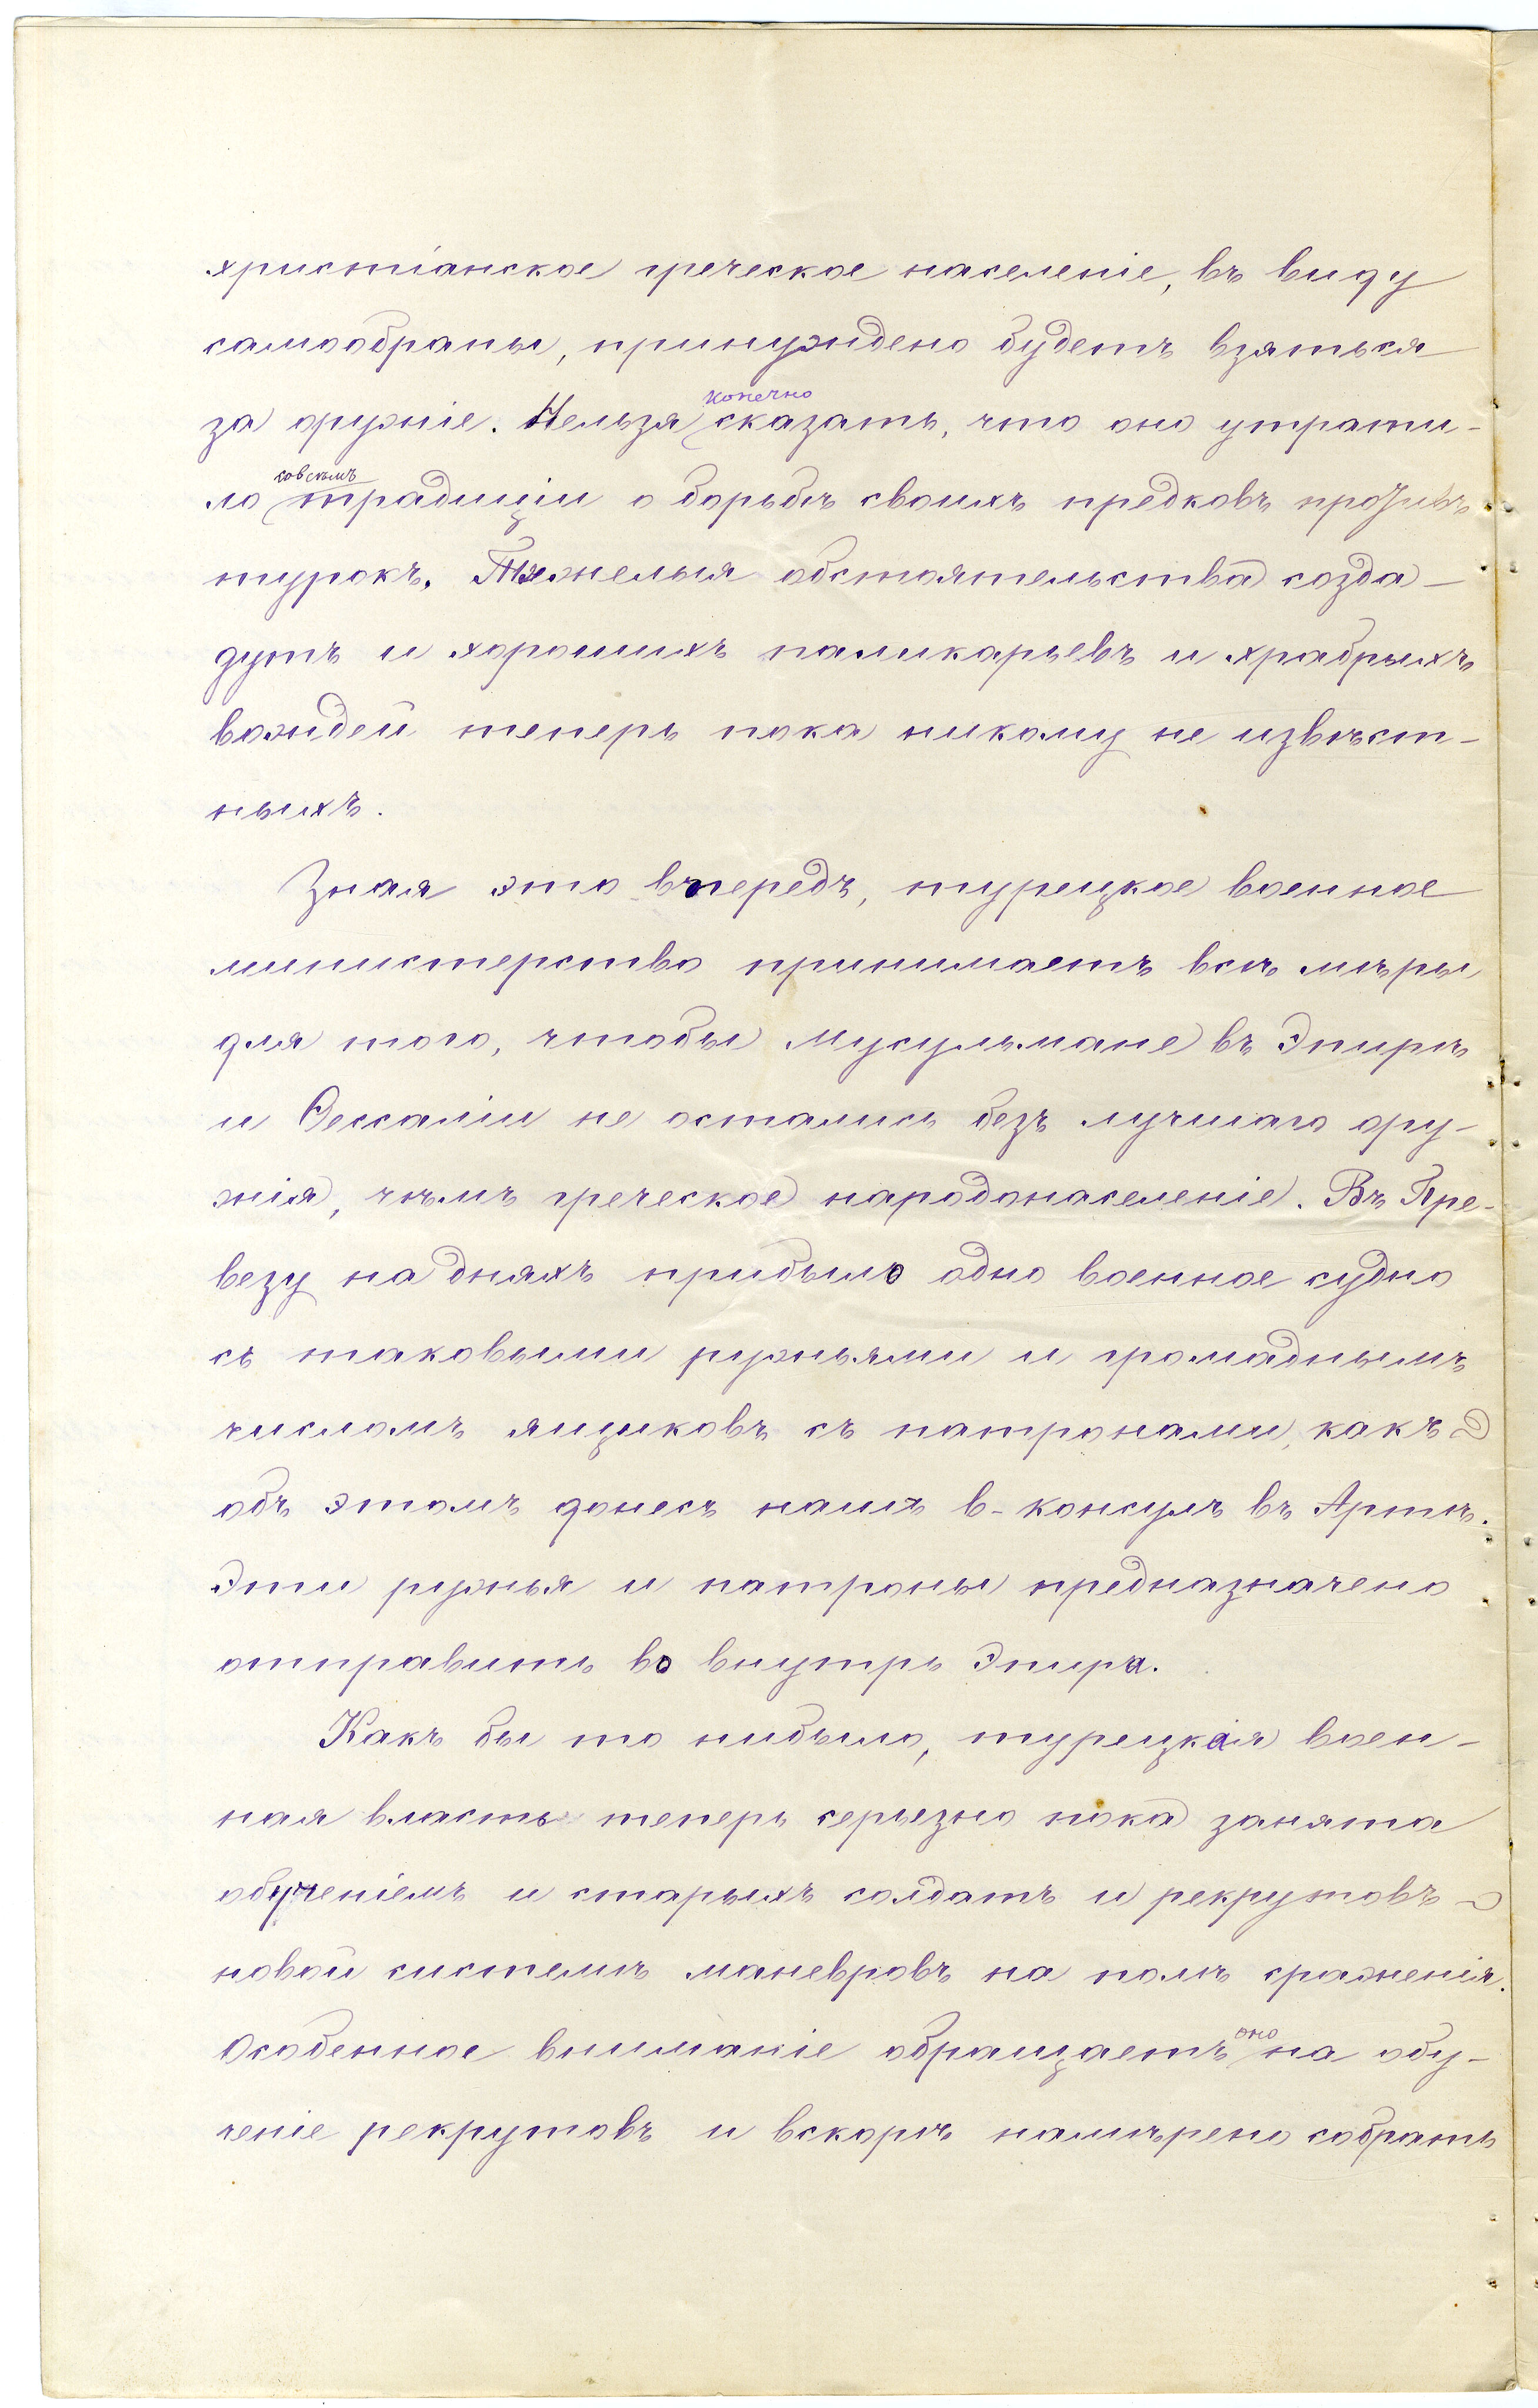 христіанское греческое населеніе, въ виду
самообраны, принуждено будетъ взяться
за оружіе. Нельзя конечно сказать, что оно утрати-
ло совсѣмъ традиціи о борьбѣ своихъ предковъ противъ
турокъ. Тяжелыя обстоятельства созда-
дутъ и хорошихъ паликарьевъ и храбрыхъ
вождей теперь пока никому не извѣст-
ныхъ.
Зная это впередъ, турецкое военное
министерство принимаетъ всѣ мѣры
для того, чтобы мусульмане въ Эпирѣ
и Ѳессаліи не остались безъ лучшаго ору-
жія, чѣмъ греческое народонаселеніе. Въ Пре-
везу на дняхъ прибыло одно военное судно
съ таковыми ружьями и громаднымъ
числомъ ящиковъ съ патронами, какъ
объ этомъ донесъ нашъ в-консулъ въ Артѣ.
Эти ружья и патроны предназначено
отправить во внутрь Эпира.
Какъ бы то нибыло, турецкая воен-
ная власть теперь серьезно пока занята
обученіемъ и старыхъ солдатъ и рекрутовъ
новой системѣ маневровъ на полѣ сраженія.
Особенное вниманіе обращаетъ оно на обу-
ченіе рекрутовъ и вскорѣ намѣрено собрать